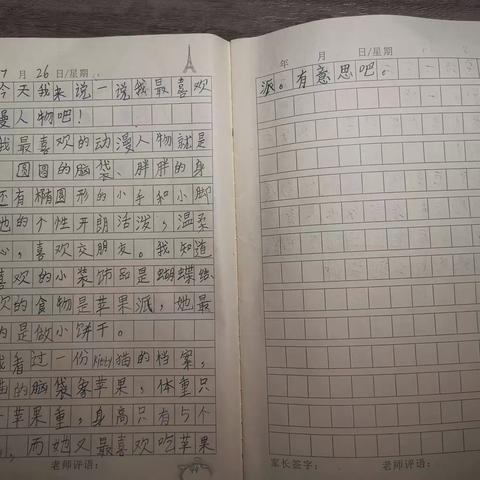 月 26 日/星期
今天我来说一说我最喜欢
漫人物吧！
我最喜欢的动漫人物就是
圆圆的脑袋、胖胖的身
还有椭圆形的小手和小脚
她的个性开朗活泼，温柔
心，喜欢交朋友。我知道
喜欢的小装饰品是蝴蝶结
欢的食物是苹果派，她最
的是做小饼干。
我看过一份kitty猫的档案，
猫的脑袋象苹果，体重只
个苹果重，身高只有5个
，而她又最喜欢吃苹果
老师评语：
年 月 日/星期
派。有意思吧。
家长签字： 老师评语：